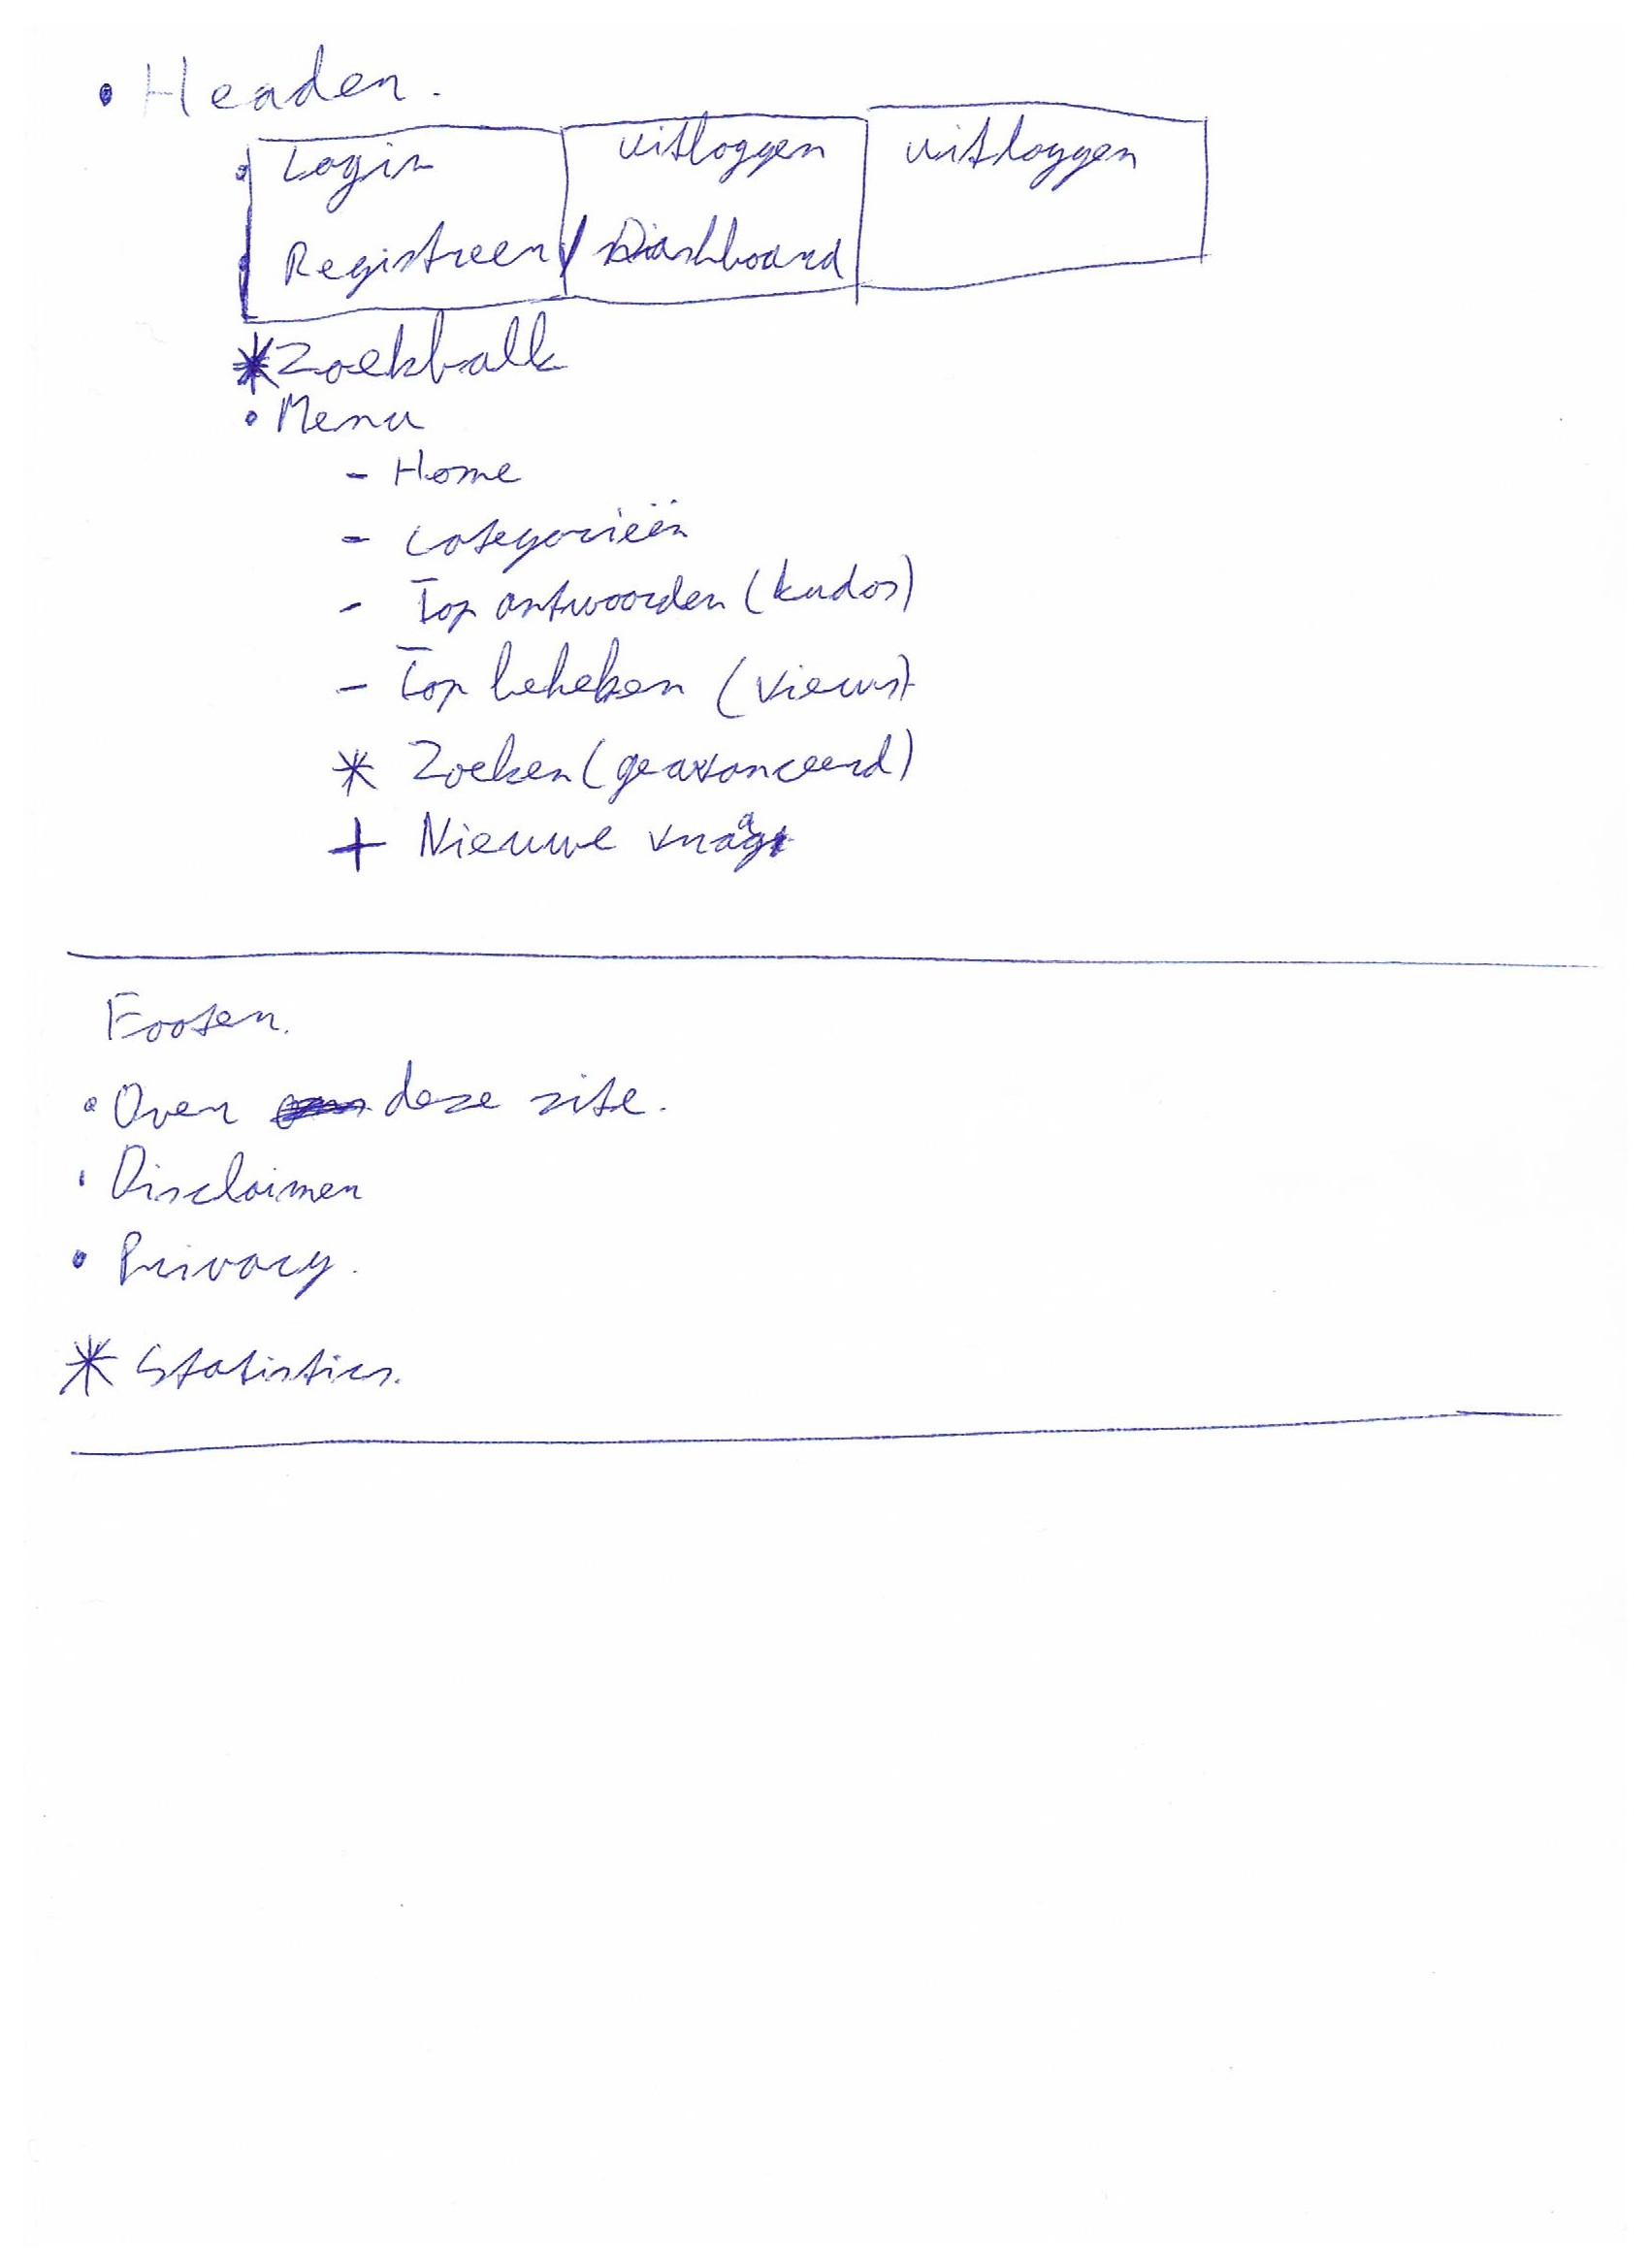 • Header.
• Login uitloggen uitloggen
• Registreer / Dashboard
* Zoekbalk
• Menu
- Home
- Categorieën
- Top antwoorden (kudos)
- Top bekeken (views)
* Zoeken (geavanceerd)
+ Nieuwe vraag
Footer.
• Over deze site.
• Disclaimer
• Privacy.
* Statistics.